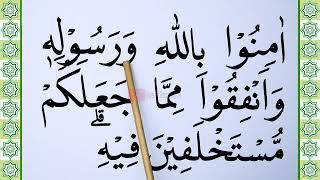 اٰمِنُوۡا بِاللّٰهِ وَرَسُوۡلِهٖ
وَاَنۡفِقُوۡا مِمَّا جَعَلَكُمۡ
مُّسۡتَخۡلَفِيۡنَ فِيۡهِ‌ؕ